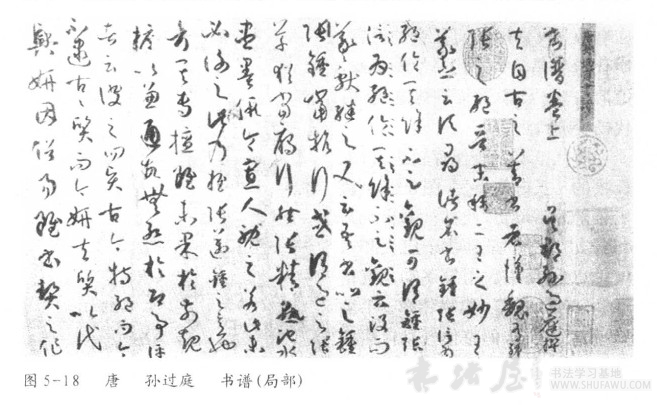 書譜卷上 吳郡孫過庭撰
夫自古之善書者漢魏有鍾
張之絕晉末稱二王之妙王
羲之云頃尋諸名書鍾張信為
絕倫其餘不足觀可謂鍾張
信為絕倫其餘不足觀云沒而
羲獻繼之又云吾書比之鍾
張鍾當抗行或謂過之張
草猶當雁行然張精熟池水
盡墨假令寡人耽之若此未
必謝之此乃推張邁鍾之意也
考其專擅雖未果於前規
摭以兼通故無慚於即事評
者云彼之四賢古今特絕而今
不逮古〻質而今妍夫質以代
興妍因俗易雖書契之作
图5-18 唐 孙过庭 书谱(局部)
书法屋
书法学习基地
WWW.SHUFAWU.COM